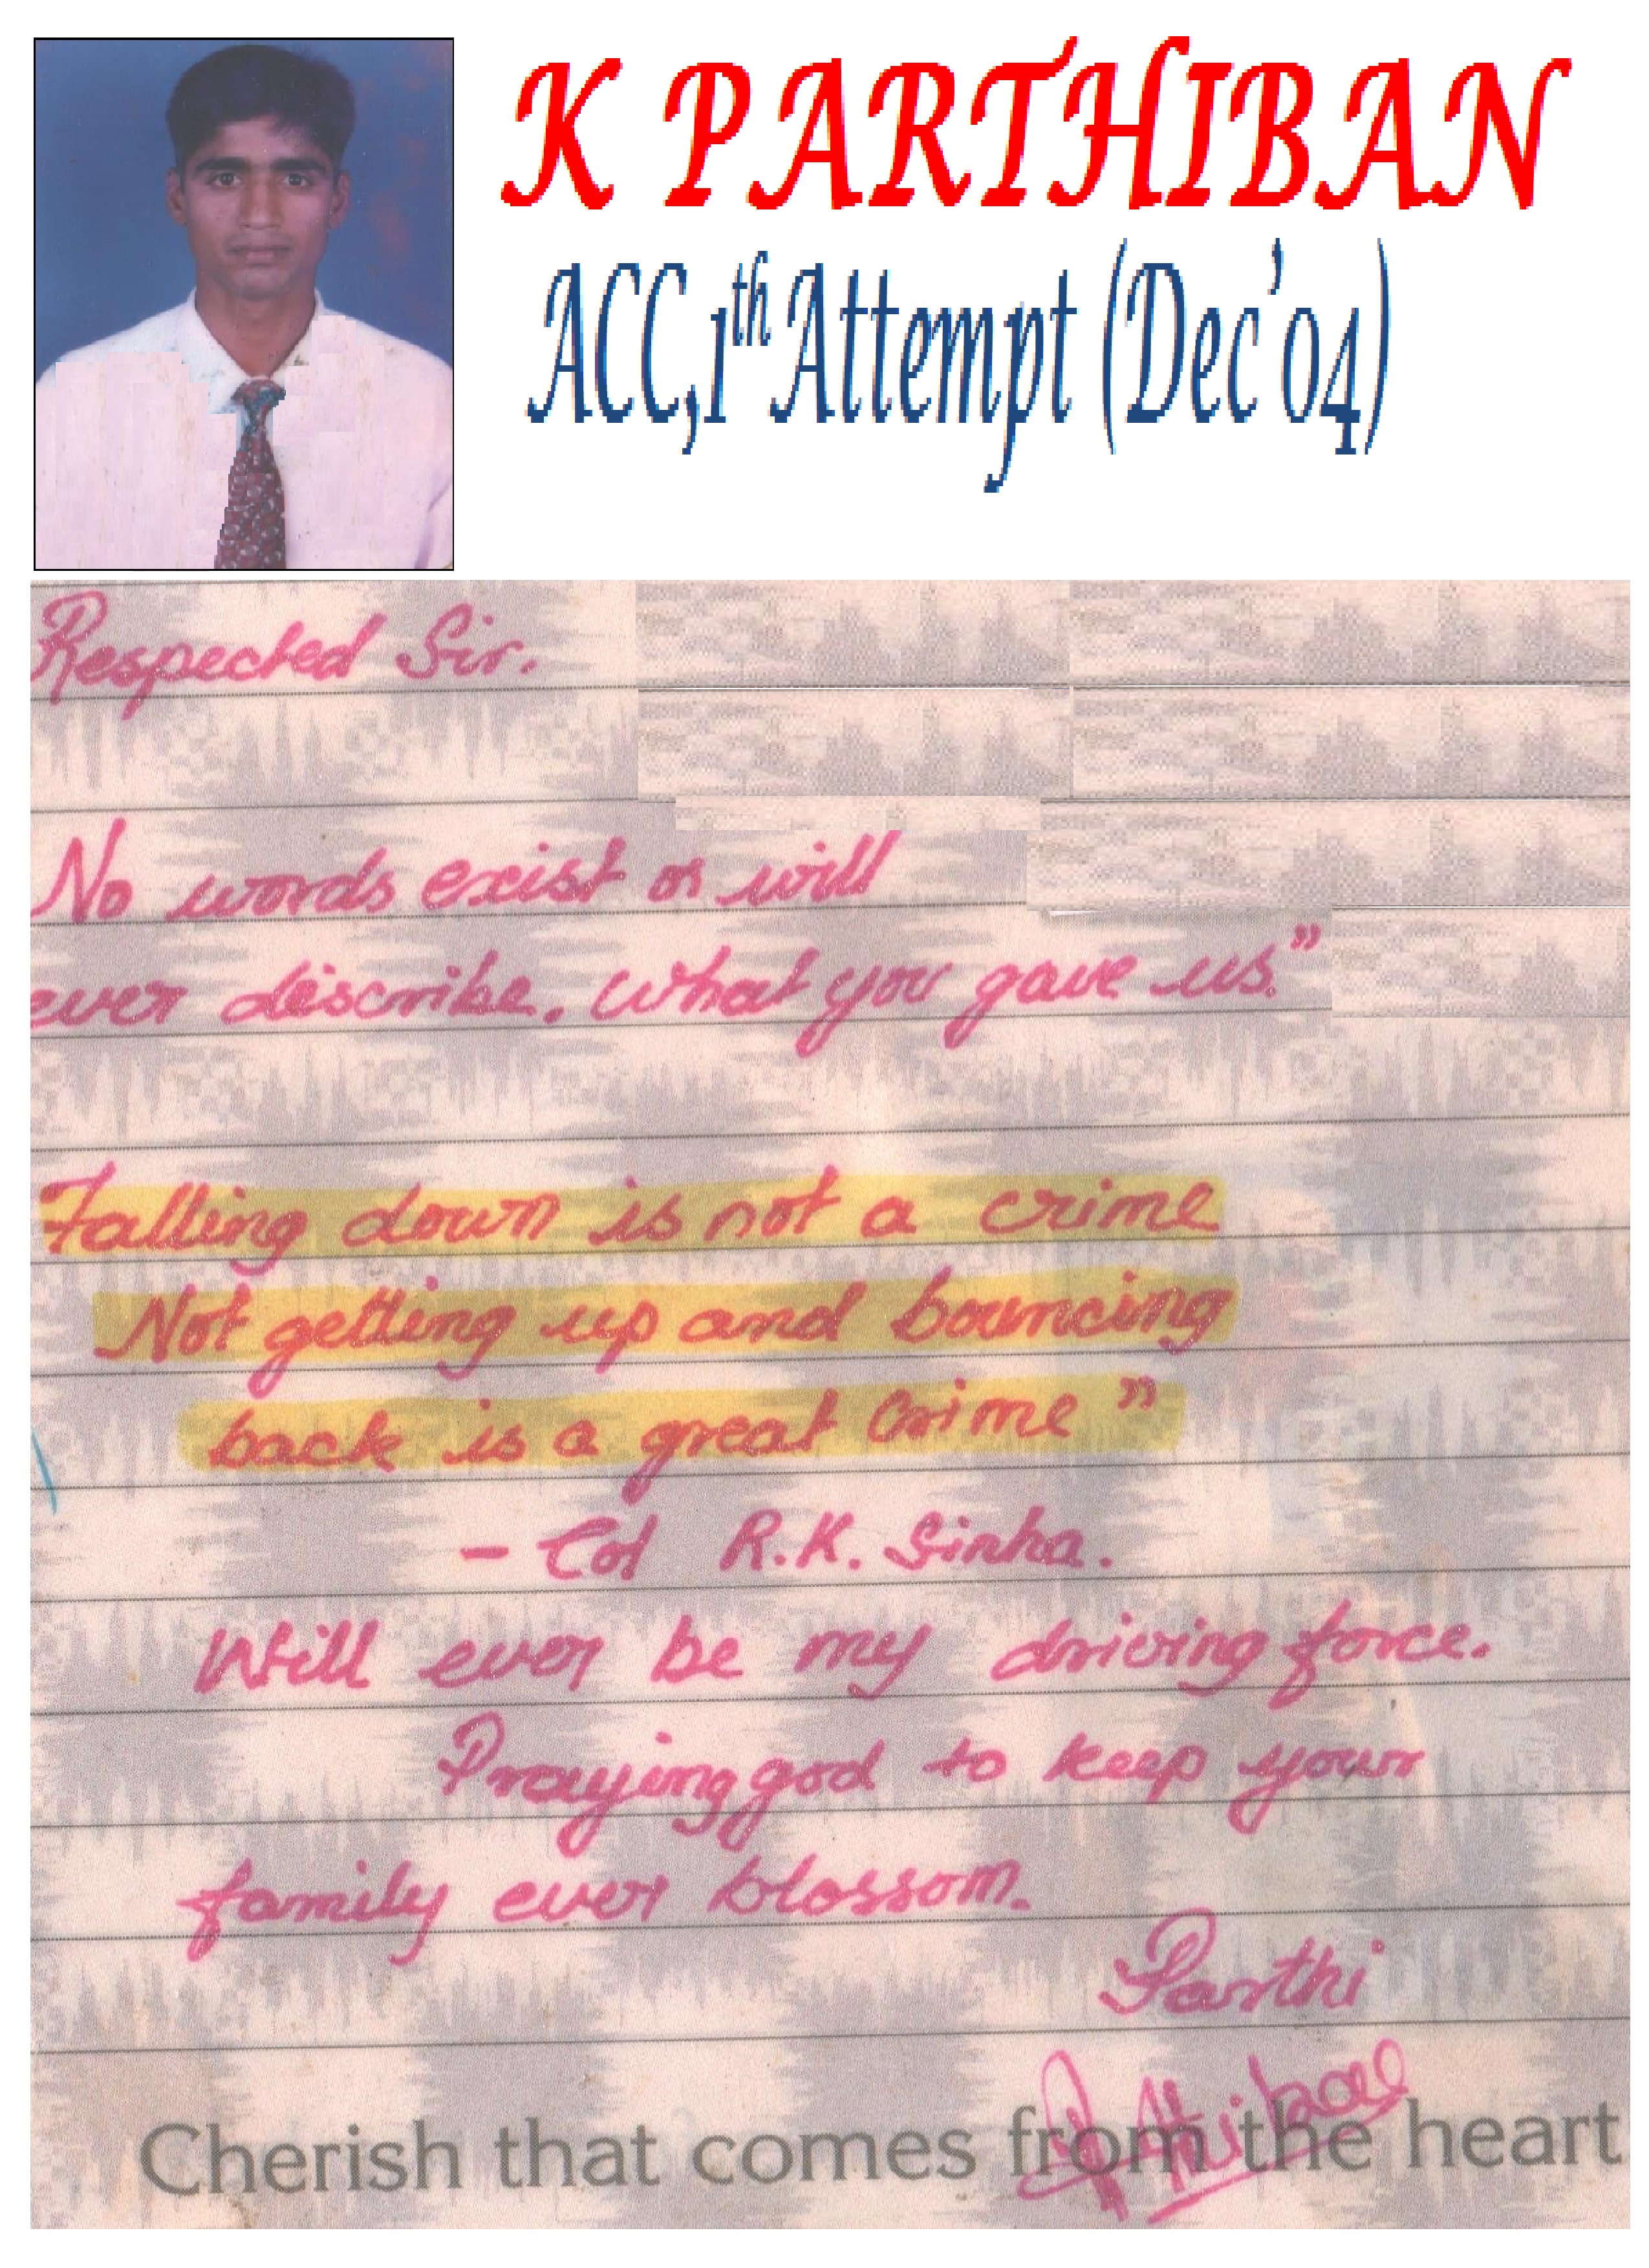 K PARTHIBAN
ACC,1th Attempt (Dec'04)
Respected Sir.
No words exist or will
ever describe. what you gave us."
Falling down is not a crime
Not getting up and bouncing
back is a great Crime"
- Col R.K. Sinha.
Will ever be my driving force.
Praying god to keep your
family ever blossom.
Parthi
Cherish that comes from the heart